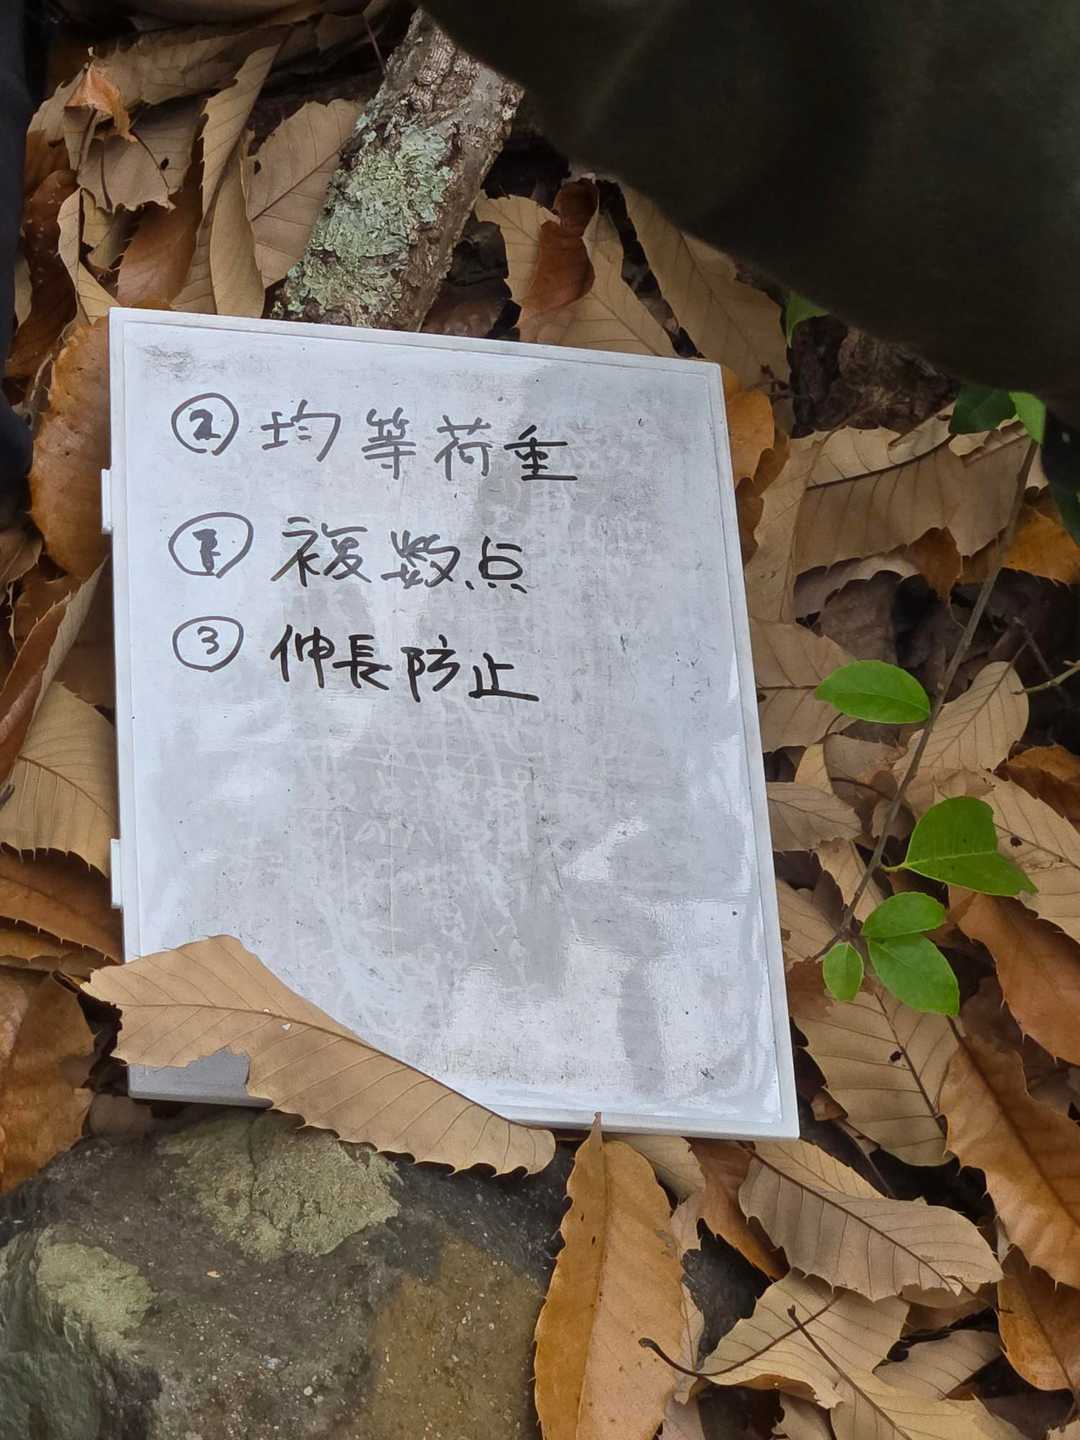 ② 均等荷重
① 複数点
③ 伸長防止